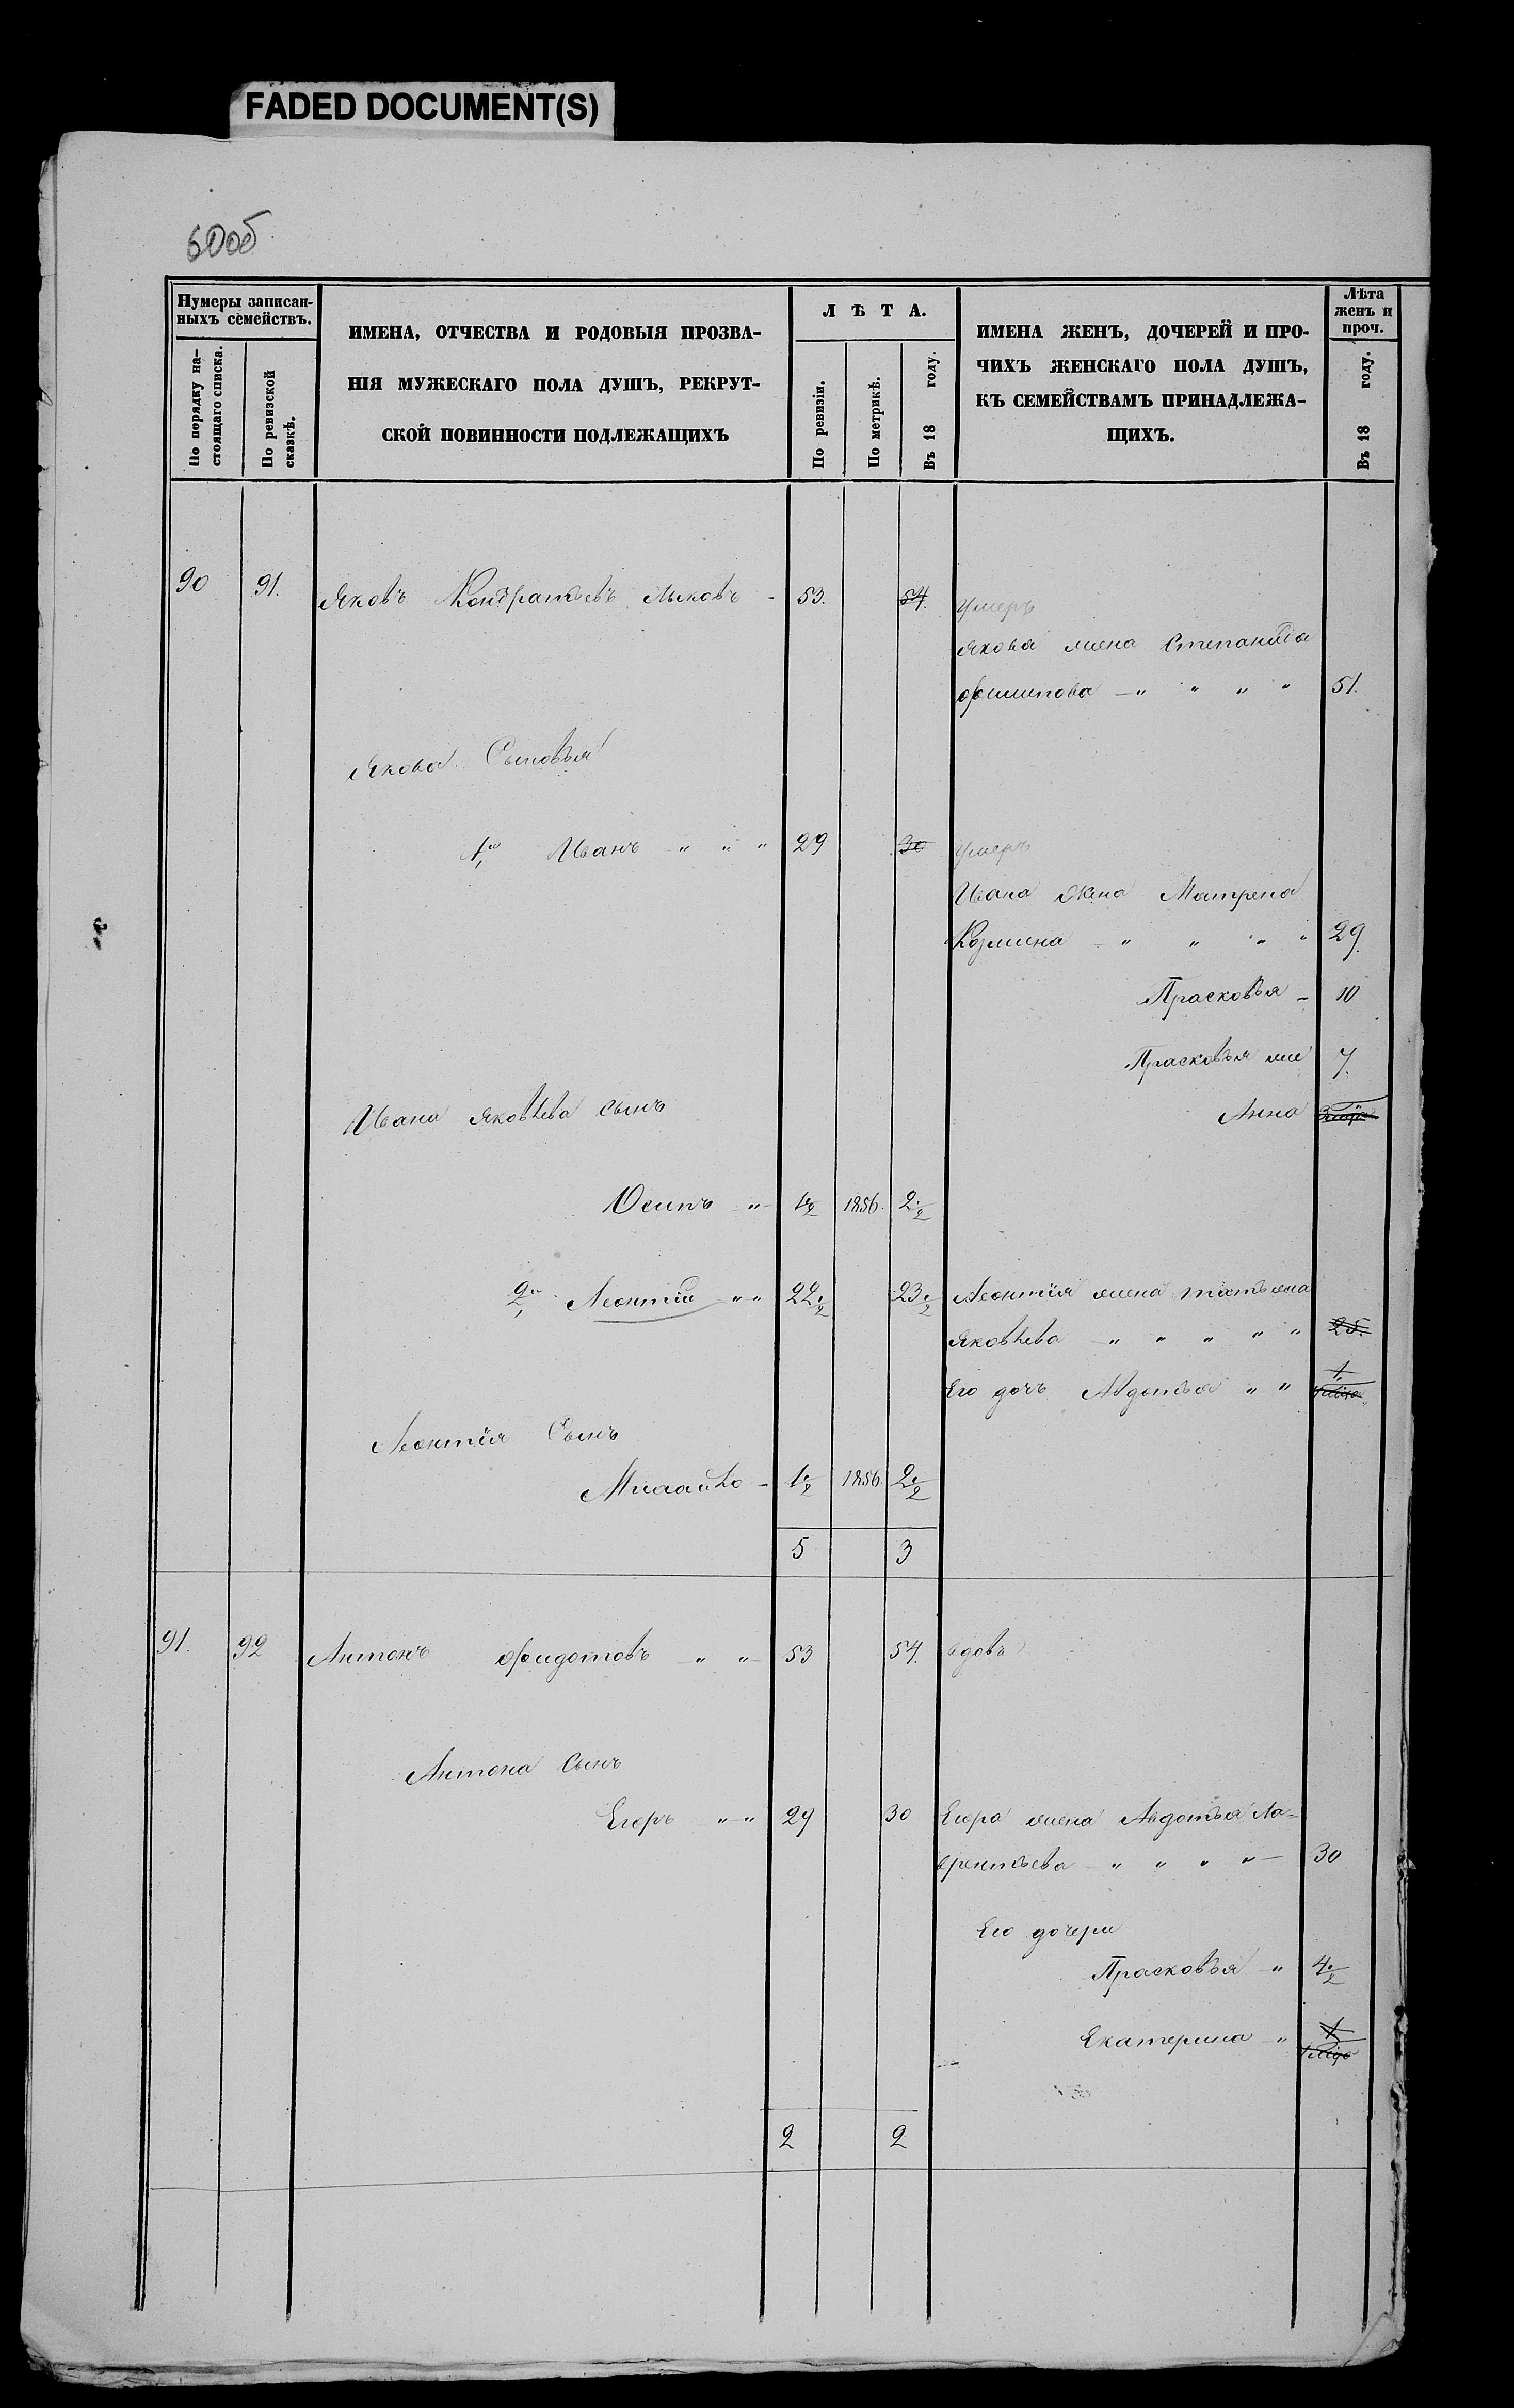 FADED DOCUMENT(S)
60об
Нумеры записан-
ныхъ семействъ.
По порядку на-
стоящаго списка.
По ревизской
сказкѣ.
ИМЕНА, ОТЧЕСТВА И РОДОВЫЯ ПРОЗВА-
НІЯ МУЖЕСКАГО ПОЛА ДУШЪ, РЕКРУТ-
СКОЙ ПОВИННОСТИ ПОДЛЕЖАЩИХЪ
ЛѢТА.
По ревизіи.
По метрикѣ.
Въ 18 году.
ИМЕНА ЖЕНЪ, ДОЧЕРЕЙ И ПРО-
ЧИХЪ ЖЕНСКАГО ПОЛА ДУШЪ,
КЪ СЕМЕЙСТВАМЪ ПРИНАДЛЕЖА-
ЩИХЪ.
Лѣта
женъ и
проч.
Въ 18 году.
90 91. Яковъ Кондратьевъ Лыковъ - 53. 54. умеръ
Якова жена Степанида
Филипова - " " " " 51.
Якова Сыновья
1й Иванъ " " " 29 30 умеръ
Ивана жена Матрена
Козмина - " " " " 29.
Прасковья - 10
Прасковья 7.
Ивана Яковлева сынъ
Анна
Осипъ " 1½ 1856. 2½
2й Леонтій " " 22½ 23½ Леонтія жена Татьяна
Яковлева " " " " " 25.
Его дочь Авдотья " " 1
Леонтія Сынъ
Михайло - 1½ 1856. 2½
5 3
91. 92 Антонъ Фидотовъ " " 53 54. вдовъ
Антона Сынъ
Егоръ " " 29 30 Егора жена Авдотья Ла-
врентьева " " " " 30
Его дочери
Прасковья " 4½
Екатерина " 1
2 2